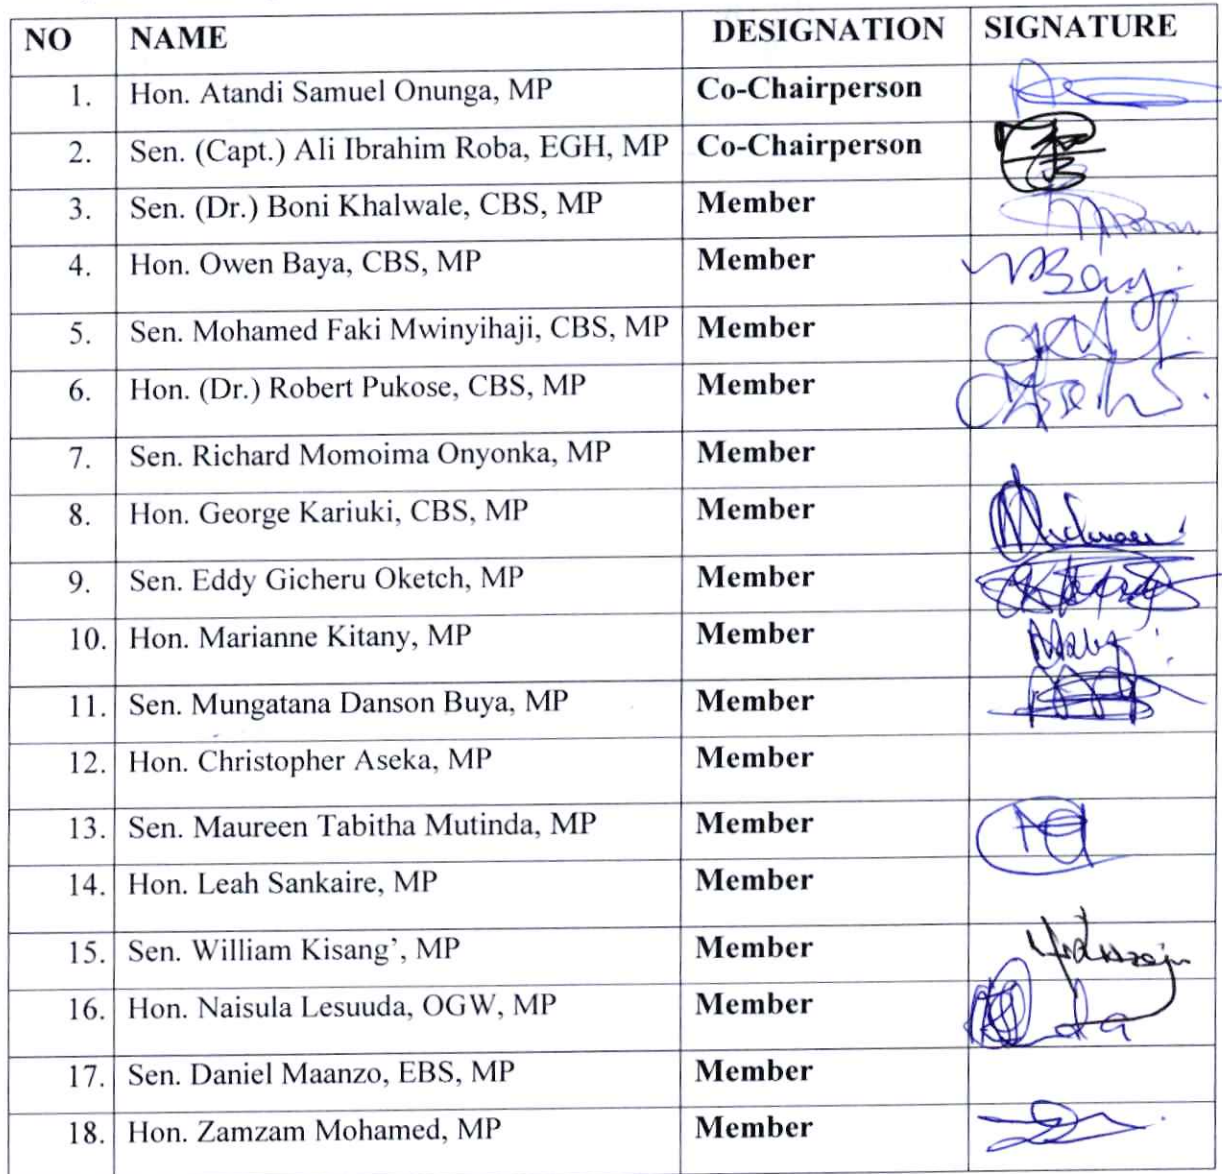 NO NAME DESIGNATION SIGNATURE
1. Hon. Atandi Samuel Onunga, MP Co-Chairperson
2. Sen. (Capt.) Ali Ibrahim Roba, EGH, MP Co-Chairperson
3. Sen. (Dr.) Boni Khalwale, CBS, MP Member
4. Hon. Owen Baya, CBS, MP Member
5. Sen. Mohamed Faki Mwinyihaji, CBS, MP Member
6. Hon. (Dr.) Robert Pukose, CBS, MP Member
7. Sen. Richard Momoima Onyonka, MP Member
8. Hon. George Kariuki, CBS, MP Member
9. Sen. Eddy Gicheru Oketch, MP Member
10. Hon. Marianne Kitany, MP Member
11. Sen. Mungatana Danson Buya, MP Member
12. Hon. Christopher Aseka, MP Member
13. Sen. Maureen Tabitha Mutinda, MP Member
14. Hon. Leah Sankaire, MP Member
15. Sen. William Kisang’, MP Member
16. Hon. Naisula Lesuuda, OGW, MP Member
17. Sen. Daniel Maanzo, EBS, MP Member
18. Hon. Zamzam Mohamed, MP Member